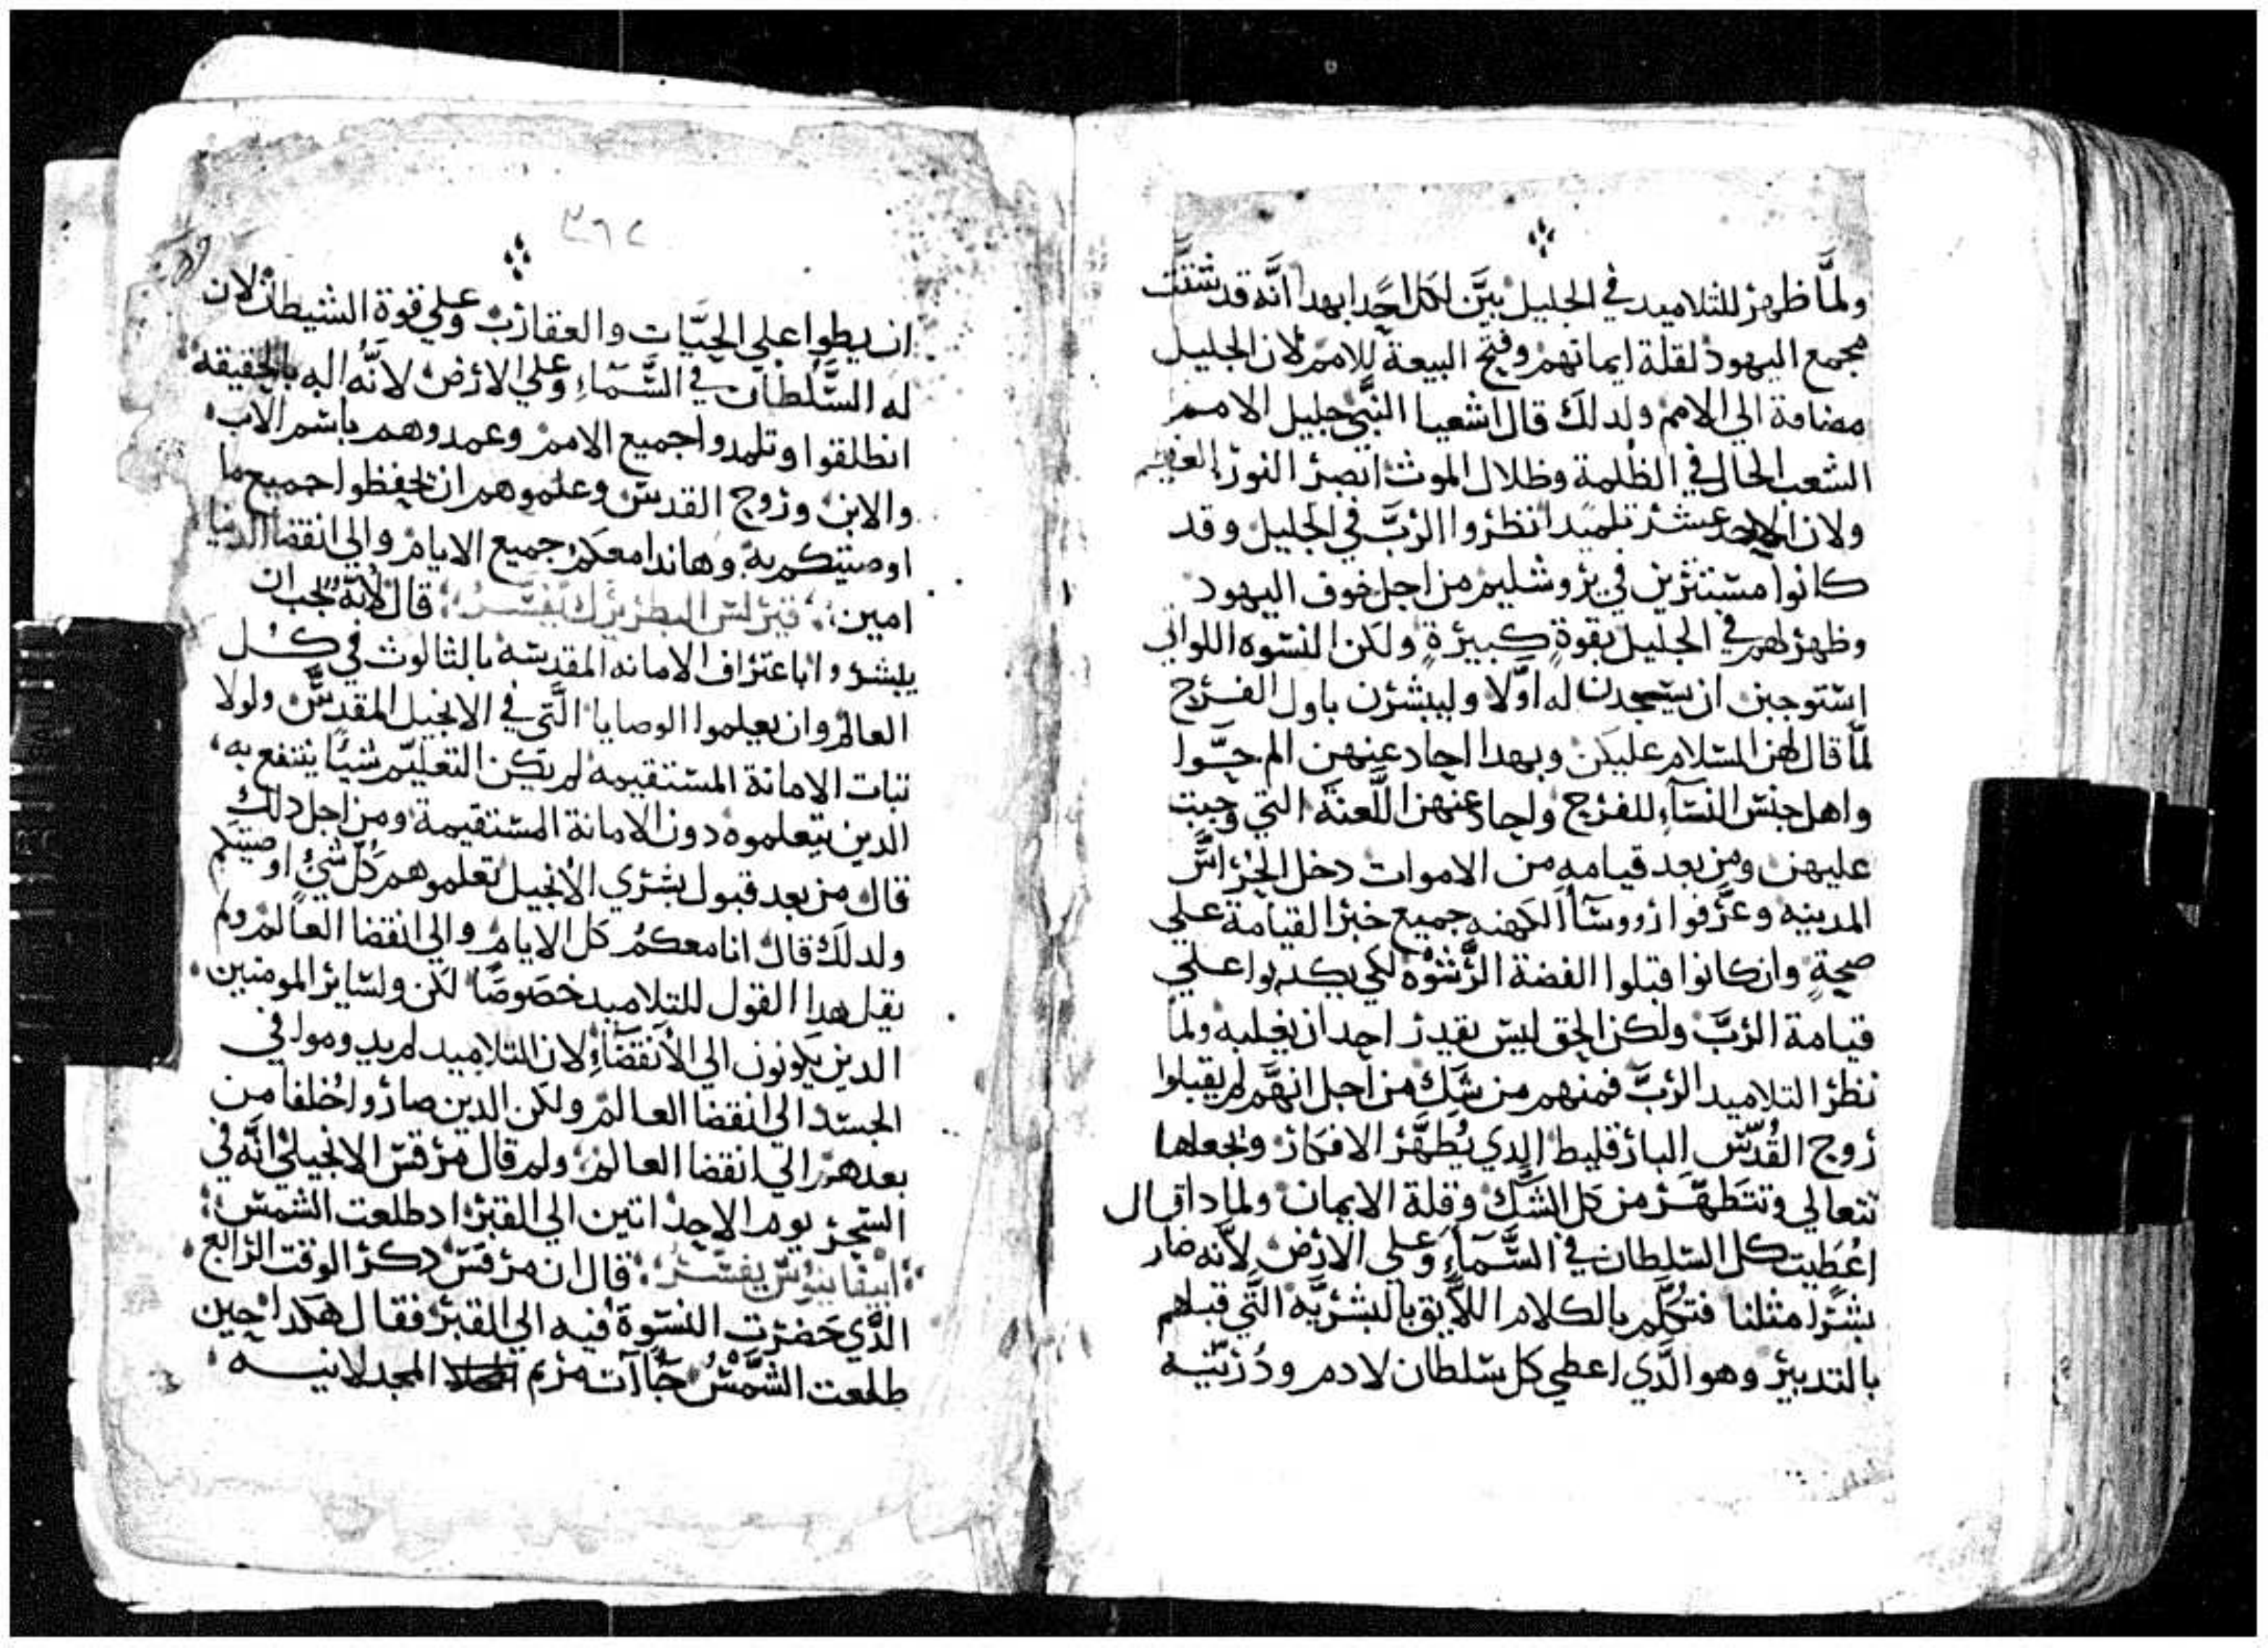 ولمَّا ظهر للتلاميد في الجليل بيَّن لكل احَدٍ ابهدا انَّه قد شتَّت
مجمع اليهود لقلة ايمانهم وفتح البيعة للامم لان الجليل
مضافة الي الامم ولدلك قال اشعيا النبَّي جليل الامم
الشعب الحال في الظلمة وظلال الموت ابصر النور العظيم
ولان الاحد عشر تلميدا نظروا الربَّ في الجليل وقد
كانوا مستترين في يروشليم من اجل خوف اليهود
وظهر لهم في الجليل بقوةٍ كبيرةٍ ولكن النسوه اللواتي
استوجبن ان يسجدن له اوَّلا وليبشرن باول الفرح
لمَّا قال لهن السلام عليكن وبهدا احاد عنهن الم حوَّا
واهل جنس النسآء للفرح واحاد عنهن اللَّعنَه التي وجبت
عليهن ومن بعد قيامه من الاموات دخل الحرّاس
المدينه وعرَّفوا رووسآ الكهنه جميع خبر القيامة علي
صحةٍ وان كانوا قبلوا الفضة الرَّشوْه لكي يكدبوا علي
قيامة الربَّ ولكن الحق ليس يقدر احد ان يغلبه ولما
نظر التلاميد الربَّ فمنهم من شَك من اجل انهَّم لم يقبلوا
روح القُدس البارقليط الدي يُطهَّر الافكار ويجعلها
تتعالي وتتطهَّر من كل الشَّك وقلة الايمان ولمادا قال
اعُطيت كل السلطان في السَّمآءِ وعلي الارض لانَّه صار
بشرًا مثلنا فتكلَّم بالكلام اللَّايق بالبشريَّه التَّي قبلهم
بالتدبير وهو الَّدي اعطي كل سلطان لادم ودُريّته
٣٦٢
ان يطوا علي الحيَّات والعقارب وعلي قوة الشيطان لان
له السَّلطان في السَّماءِ وعلي الارض لانَّه اله بالحقيقه
انطلقوا وتلمدوا جميع الامم وعمدوهم باسم الاب
والابن وروح القدس وعلموهم ان يحفظوا جميع ما
اوصيتكم به وهاندا معكم جميع الايام والي انقضا الدنيا
امين قيرلس البطريرك يفسر قال لانَّه يجب ان
يبشروا باعتراف الامانه المقدسه بالثالوث في كل
العالم وان يعلموا الوصايا الَّتي في الانجيل المقدس ولولا
تبات الامانة المستقيمه لم يكن التعليم شيًا ينتفع به
الدين يتعلموه دون الامانة المستقيمة ومن اجل دلك
قال من بعد قبول بشري الانجيل تعلموهم كل شيء اوصيتكم
ولدلك قال انا معكم كل الايام والي انقضا العالم ولم
يقل هدا القول للتلاميد خصَوصًا لكن ولساير المومنين
الدين يكونون الي الانقضآءِ لان التلاميد لم يدوموا في
الجسد الي انقضا العالم ولكن الدين صاروا خُلفا من
بعدهم الي انقضا العالم ولم قال مرقس الانجيلي انَّه في
السَّحر يوم الاحد اتين الي القبر اد طلعت الشمس
ابيفانيوس يفسر قال ان مرقس دكر الوقت الرابع
الَّدي حَضرت النسَّوةَ فيه الي القبر فقال هكدا حين
طلعت الشَّمسُ جاآت مريم المجدلانيه